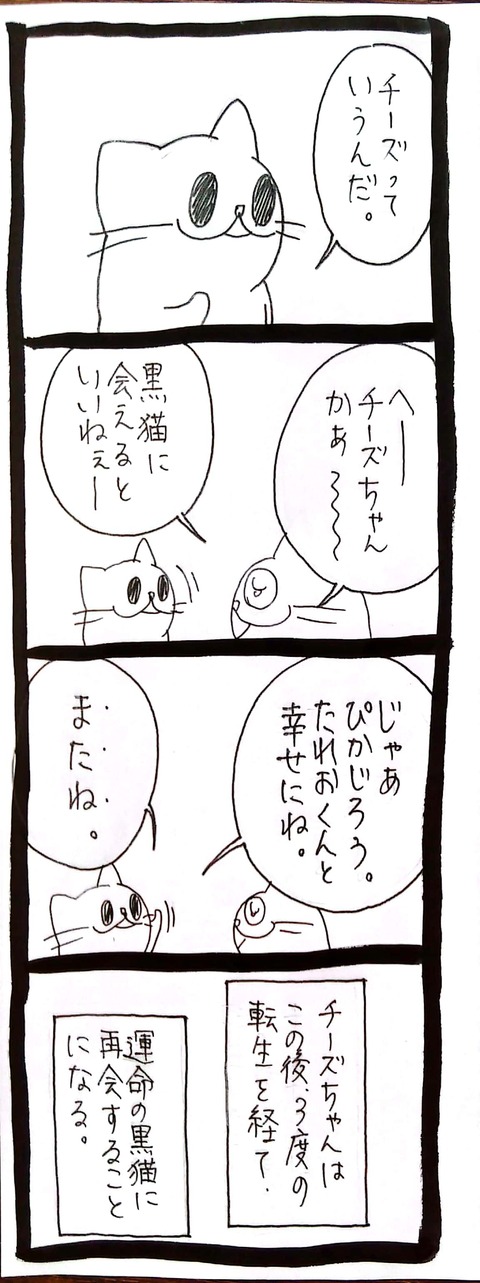 チーズって
いうんだ。
へー
チーズちゃん
かぁ〜〜〜
黒猫に
会えると
いいねぇー
じゃあ
ぴかじろう。
たれおくんと
幸せにね。
またね。
チーズちゃんは
この後、3度の
転生を経て、
運命の黒猫に
再会すること
になる。